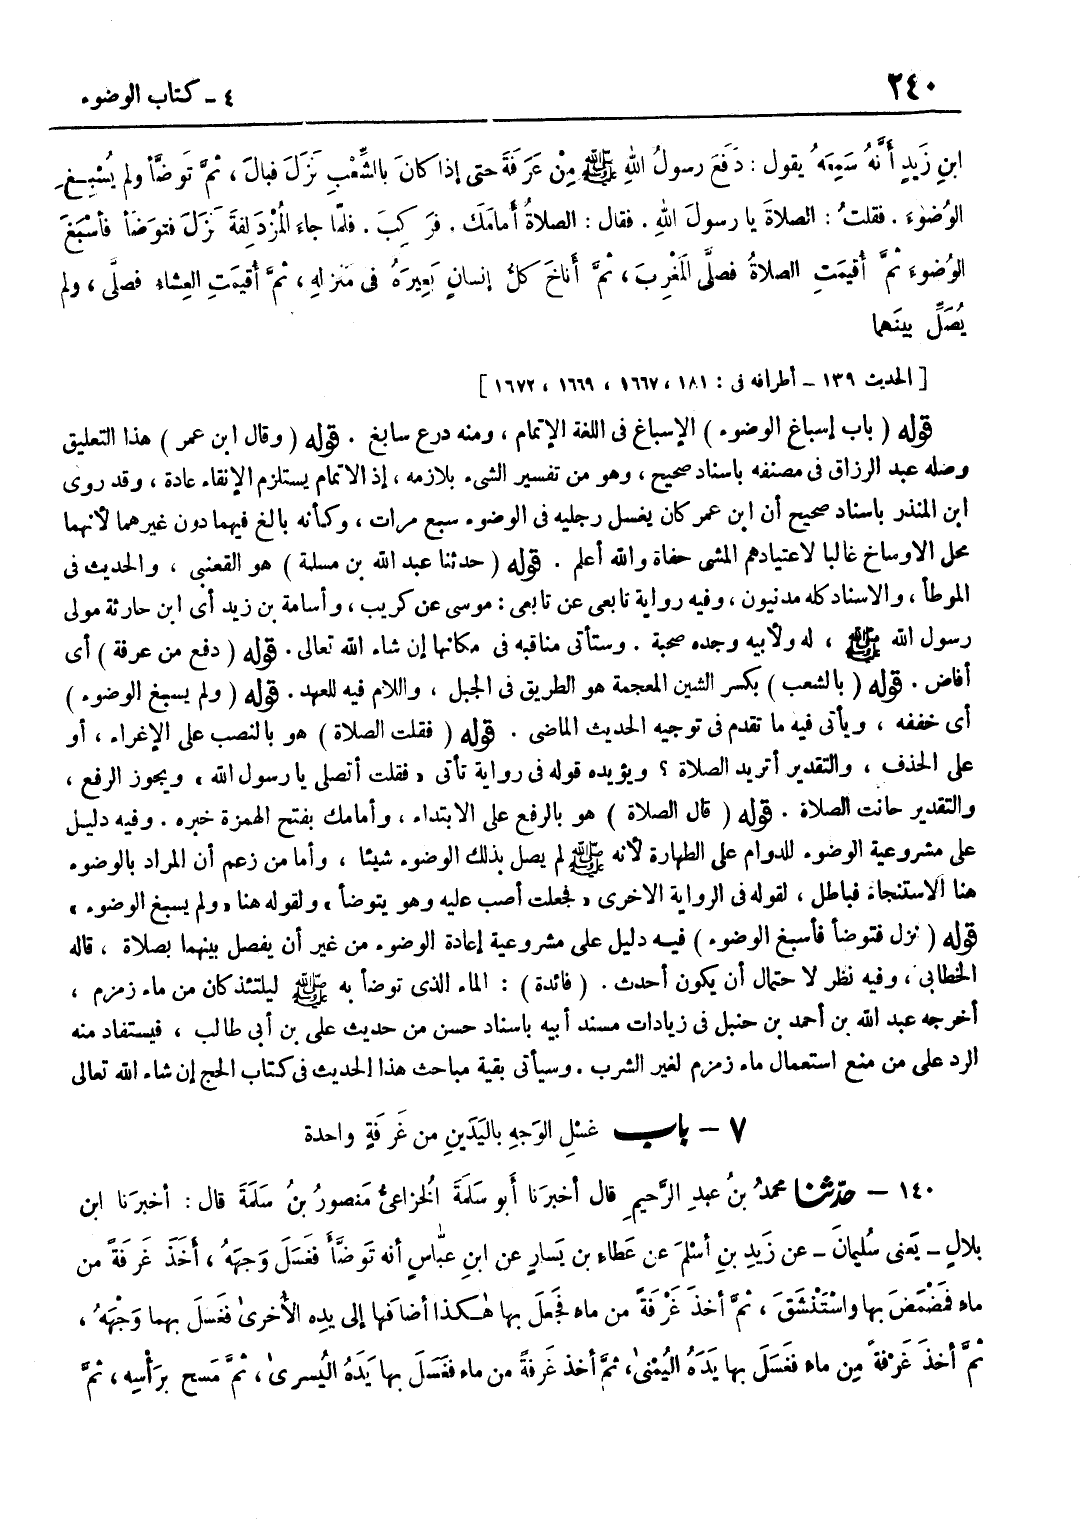 ٢٤٠
٤ - كتاب الوضوء
ابنِ زَيدٍ أَنَّهُ سَمِعَهُ يقول : دَفَعَ رسولُ اللهِ ﷺ مِنْ عَرَفَةَ حتى إذا كانَ بالشِّعْبِ نَزَلَ فبالَ ، ثمَّ تَوَضَّأ ولم يُسْبِغِ
الوُضوءَ . فقلتُ : الصلاةَ يا رسولَ اللهِ . فقال : الصلاةُ أمامَك . فرَكِبَ . فلمّا جاءَ المُزْدَلِفةَ نَزَلَ فتوَضَأ فأسْبَغَ
الوُضوءَ ثمَّ أُقيمَتِ الصلاةُ فصلَّى المَغْرِبَ ، ثمَّ أناخَ كلُّ إنسانٍ بَعِيرَهُ في مَنزلهِ ، ثمَّ أُقيمَتِ العِشاءِ فصلَّى ، ولم
يُصَلِّ بينَهما
[ الحديث ١٣٩ - أطرافه فى : ١٨١ ، ١٦٦٧ ، ١٦٦٩ ، ١٦٧٢ ]
قوله ( باب إسباغ الوضوء ) الإسباغ فى اللغة الإتمام ، ومنه درع سابغ . قوله ( وقال ابن عمر ) هذا التعليق
وصله عبد الرزاق فى مصنفه باسناد صحيح ، وهو من تفسير الشىء بلازمه ، إذ الاتمام يستلزم الإنقاء عادة ، وقد روى
ابن المنذر باسناد صحيح أن ابن عمر كان يغسل رجليه فى الوضوء سبع مرات ، وكأنه بالغ فيهما دون غيرهما لأنهما
محل الاوساخ غالبا لاعتيادهم المشى حفاة والله أعلم . قوله ( حدثنا عبد الله بن مسلمة ) هو القعنبى ، والحديث فى
الموطأ ، والاسناد كله مدنيون ، وفيه رواية تابعى عن تابعى : موسى عن كريب ، وأسامة بن زيد أى ابن حارثة مولى
رسول الله ﷺ ، له ولأبيه وجده صحبة . وستأتى مناقبه فى مكانها إن شاء الله تعالى . قوله ( دفع من عرفة ) أى
أفاض . قوله ( بالشعب ) بكسر الشين المعجمة هو الطريق فى الجبل ، واللام فيه للعهد . قوله ( ولم يسبغ الوضوء )
أى خففه ، ويأتى فيه ما تقدم فى توجيه الحديث الماضى . قوله ( فقلت الصلاة ) هو بالنصب على الإغراء ، أو
على الحذف ، والتقدير أتريد الصلاة ؟ ويؤيده قوله فى رواية تأتى « فقلت أتصلى يا رسول الله » ويجوز الرفع ،
والتقدير حانت الصلاة . قوله ( قال الصلاة ) هو بالرفع على الابتداء ، وأمامك بفتح الهمزة خبره . وفيه دليل
على مشروعية الوضوء للدوام على الطهارة لأنه ﷺ لم يصل بذلك الوضوء شيئا ، وأما من زعم أن المراد بالوضوء
هنا الاستنجاء فباطل ، لقوله فى الرواية الاخرى « فجعلت أصب عليه وهو يتوضأ » ولقوله هنا « ولم يسبغ الوضوء »
قوله ( نزل فتوضأ فأسبغ الوضوء ) فيه دليل على مشروعية إعادة الوضوء من غير أن يفصل بينهما بصلاة ، قاله
الخطابى ، وفيه نظر لاحتمال أن يكون أحدث . ( فائدة ) : الماء الذى توضأ به ﷺ ليلتئذ كان من ماء زمزم ،
أخرجه عبد الله بن أحمد بن حنبل فى زيادات مسند أبيه باسناد حسن من حديث على بن أبى طالب ، فيستفاد منه
الرد على من منع استعمال ماء زمزم لغير الشرب . وسيأتى بقية مباحث هذا الحديث فى كتاب الحج إن شاء الله تعالى
٧ - باب غسْلِ الوَجهِ باليَدَينِ من غَرفةٍ واحدة
١٤٠ - حدّثنا محمدُ بنُ عبدِ الرَّحيمِ قال أخبرَنا أبو سَلمةَ الخزاعىُّ مَنصورُ بنُ سَلمَةَ قال : أخبرَنا ابن
بلالٍ - يَعنى سُليمانَ - عن زَيدِ بنِ أسْلمَ عن عَطاءِ بنِ يَسارٍ عنِ ابنِ عبّاسٍ أنه تَوضَّأَ فغَسلَ وَجهَهُ ، أخَذَ غَرفةً من
ماءٍ فمَضْمَضَ بها واستَنْشَقَ ، ثمَّ أخذَ غَرْفةً من ماءٍ فجَعلَ بها هٰكذا أضافَها إلى يدِه الأُخرىٰ فغَسلَ بهما وَجْهَهُ ،
ثمَّ أخذَ غَرْفةً مِن ماءٍ فغَسَلَ بها يَدَهُ اليُمْنىٰ، ثمَّ أخذ غَرفةً من ماءٍ فغَسَلَ بها يَدَهُ اليُسرىٰ ، ثمَّ مَسح برَأْسِهِ ، ثمَّ